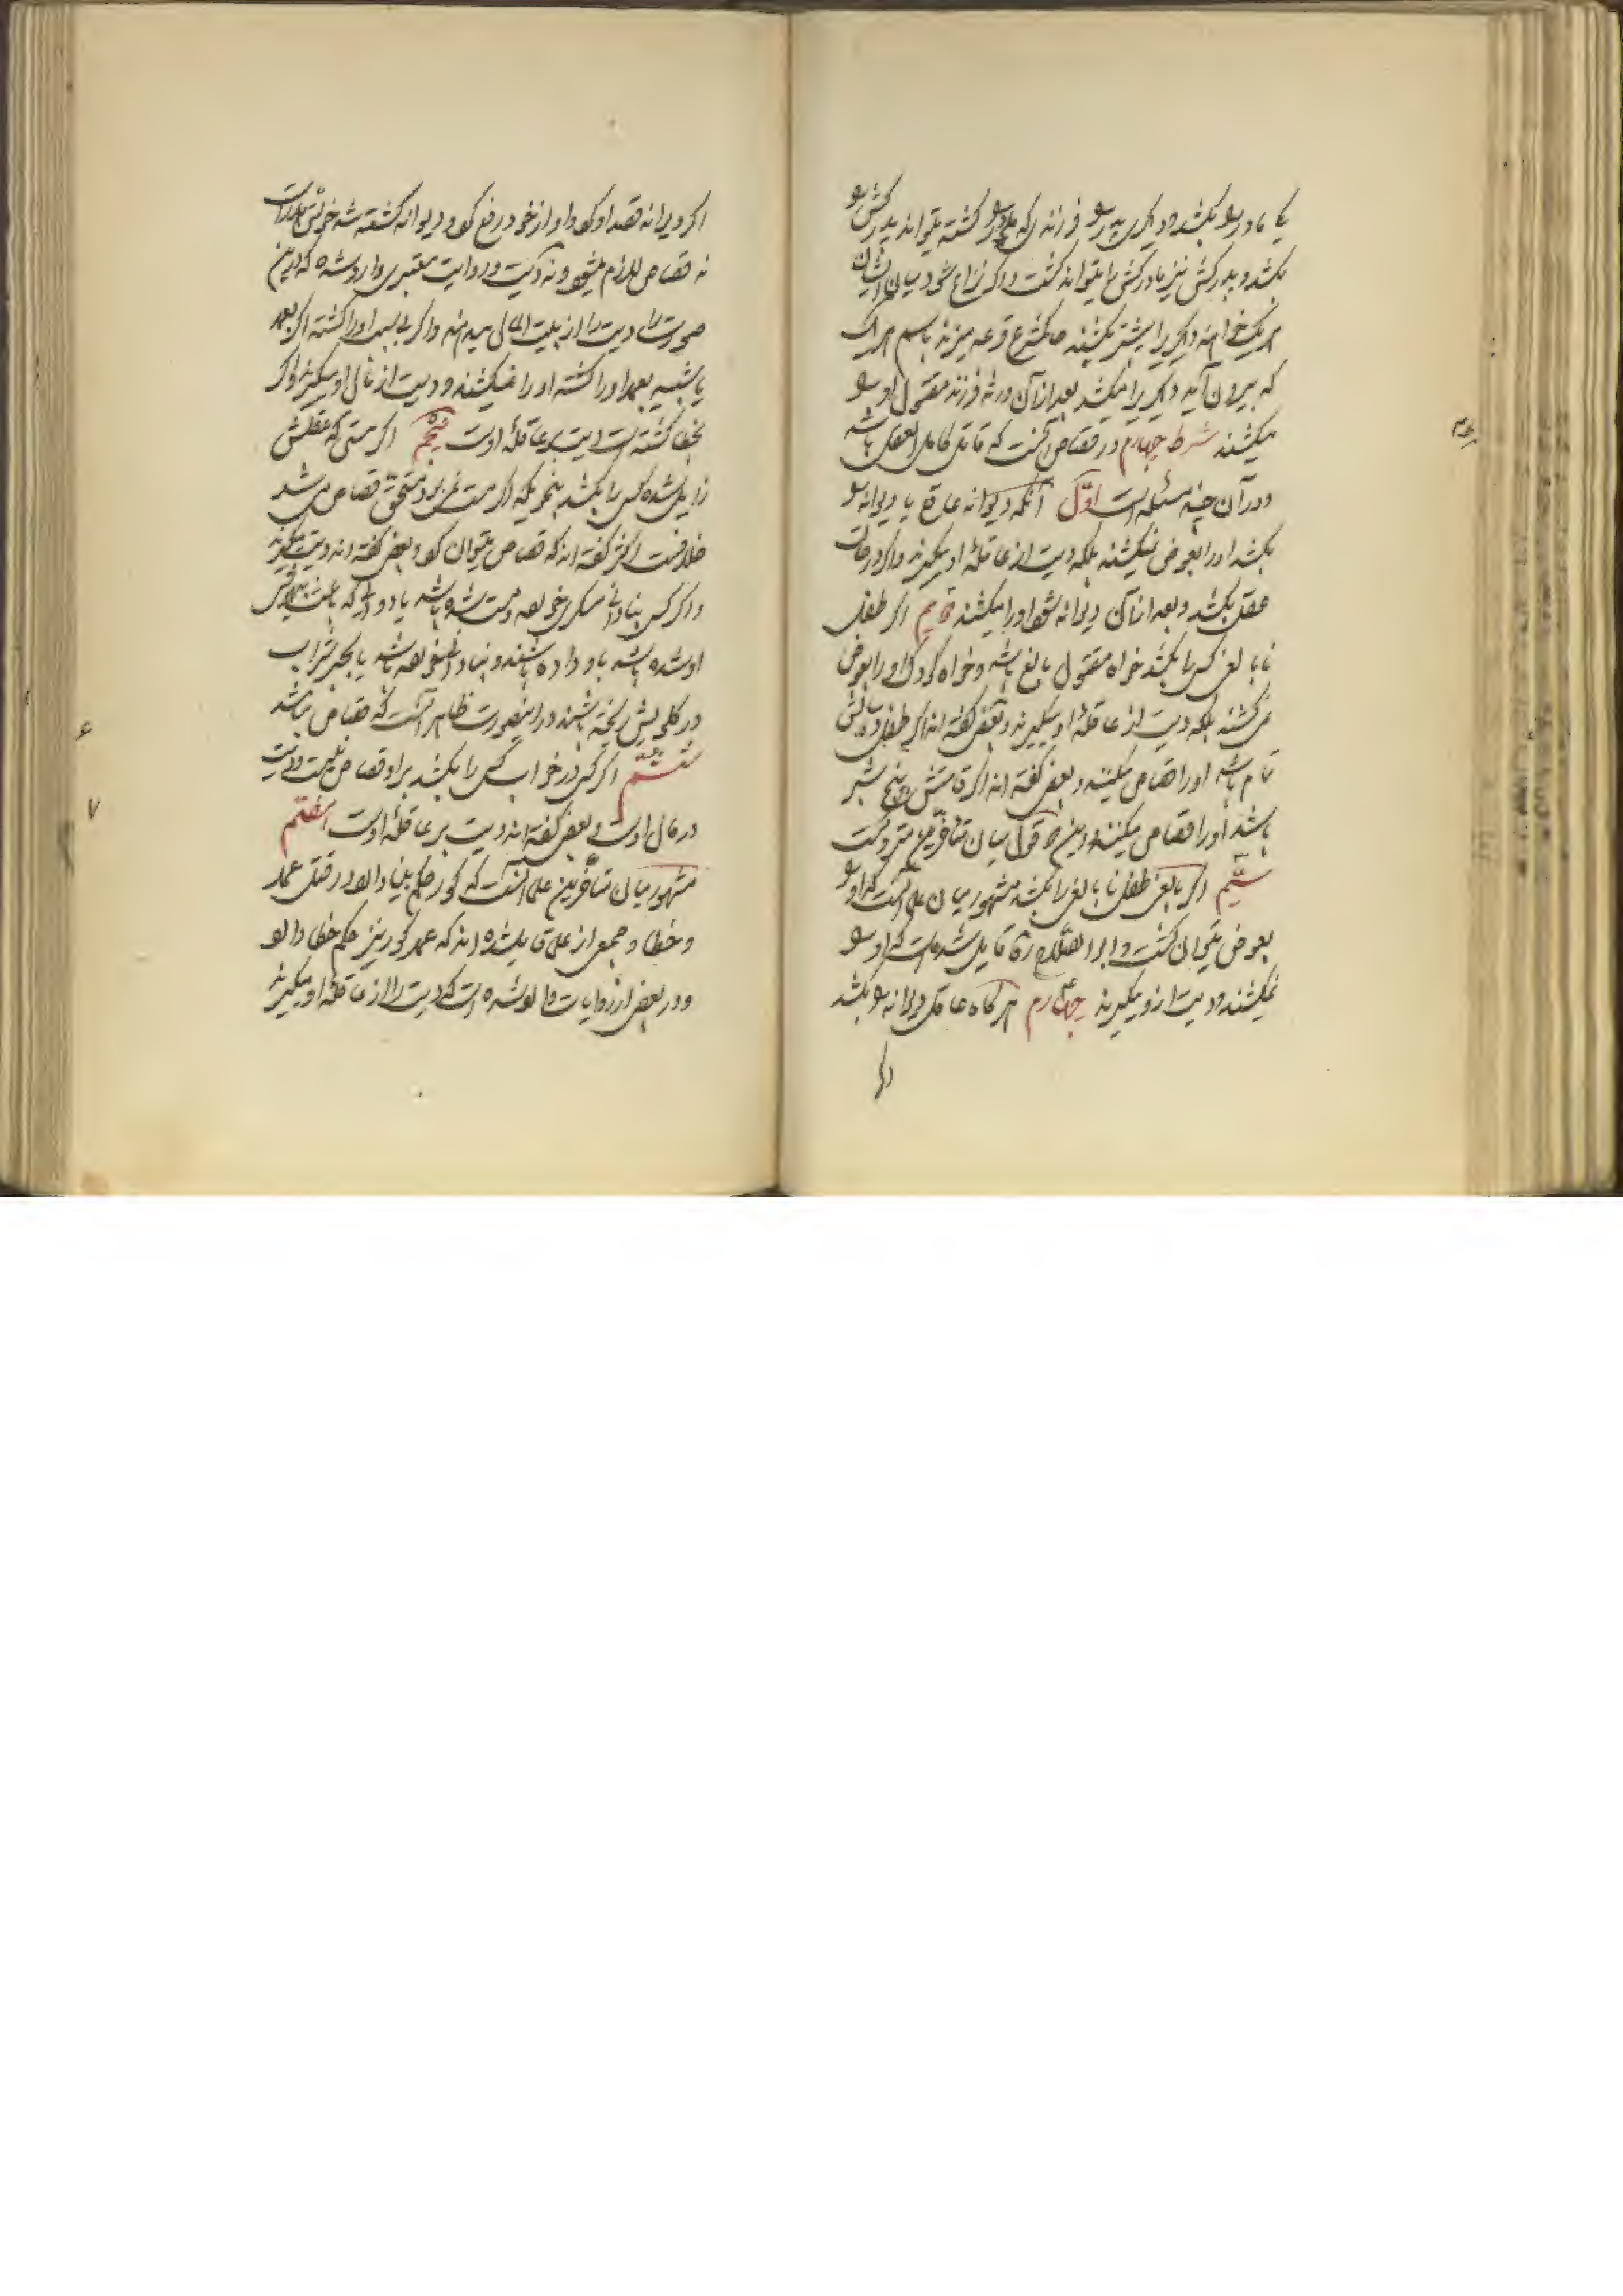 یکی مادر را بکشد و دیگری پدر را فرزندی که مادر را کشته میتواند پدرکش را
بکشد و پدرکش نیز مادرکش را میتواند کشت و اگر نزاع شود میان ایشان
هر یک خواهند دیگری را پیشتر بکشند حاکم شرع قرعه میزند باسم هر یک
که بیرون آید دیگری را میکشد بعد از آن ورثه فرزند مقتول او را
میکشند شرط چهارم در قصاص آنست که قاتل کامل العقل باشد
و در آن چند مسئله است اول آنکه دیوانه عاقل یا دیوانه را
بکشد او را بعوض نمیکشند بلکه دیت از عاقله او میگیرند و اگر در حالت
عقل بکشد و بعد از آن دیوانه شود او را میکشند دویم اگر طفل
نابالغ کسی را بکشد خواه مقتول بالغ باشد و خواه کودک او را بعوض
نمی کشند بلکه دیت از عاقله او میگیرند و بعضی گفته اند اگر طفل ده سالش
تمام باشد او را قصاص میکنند و بعضی گفته اند اگر قامتش پنج شبر
باشد او را قصاص میکنند و این دو قول میان متأخرین متروکست
سیّم اگر بالغی طفل نابالغی را بکشد مشهور میان علما آنست که او را
بعوض میتوان کشت و ابو الصلاح قایل شده است که او را
نمیکشند و دیت ازو میگیرند چهارم هر گاه عاقل دیوانه را بکشد
اگر دیوانه قصد او کرد و او از خود دفع کرد و دیوانه کشته شد خونش هدر است
نه قصاص لازم میشود و نه دیت و در روایت معتبری وارد شده که درین
صورت دیت را از بیت المال میدهند و اگر بی سبب او را کشته اگر بعمد
یا شبیه بعمد او را کشته او را نمیکشند و دیت از مال او میگیرند و اگر
بخطا کشته است دیت بر عاقله اوست پنجم اگر مستی که عقلش
زایل شده کسی را بکشد بنحوی که اگر مست نمی بود مستحق قصاص می شد
خلافست اکثر گفته اند که قصاص میتوان کرد و بعضی گفته اند دیت میگیرند
و اگر کسی بنادانی مسکری خورده و مست شده باشد یا دوائی که باعث
او شده باشد باو داده باشند و بنادانی خورده باشد یا بجبر شراب
در گلویش ریخته باشند در اینصورت ظاهر آنست که قصاص نباشد
ششم اگر کسی در خواب کسی را بکشد بر او قصاص نیست و دیت
در مال اوست و بعضی گفته اند دیت بر عاقله اوست هفتم
مشهور میان متأخرین علما آنست که کور حکم بینا دارد در قتل عمد
و خطا و جمعی از علما قایل شده اند که عمد کور نیز حکم خطا دارد
و در بعضی از روایات وارد شده است که دیت را از عاقله او میگیرند
اگر
۶
۷